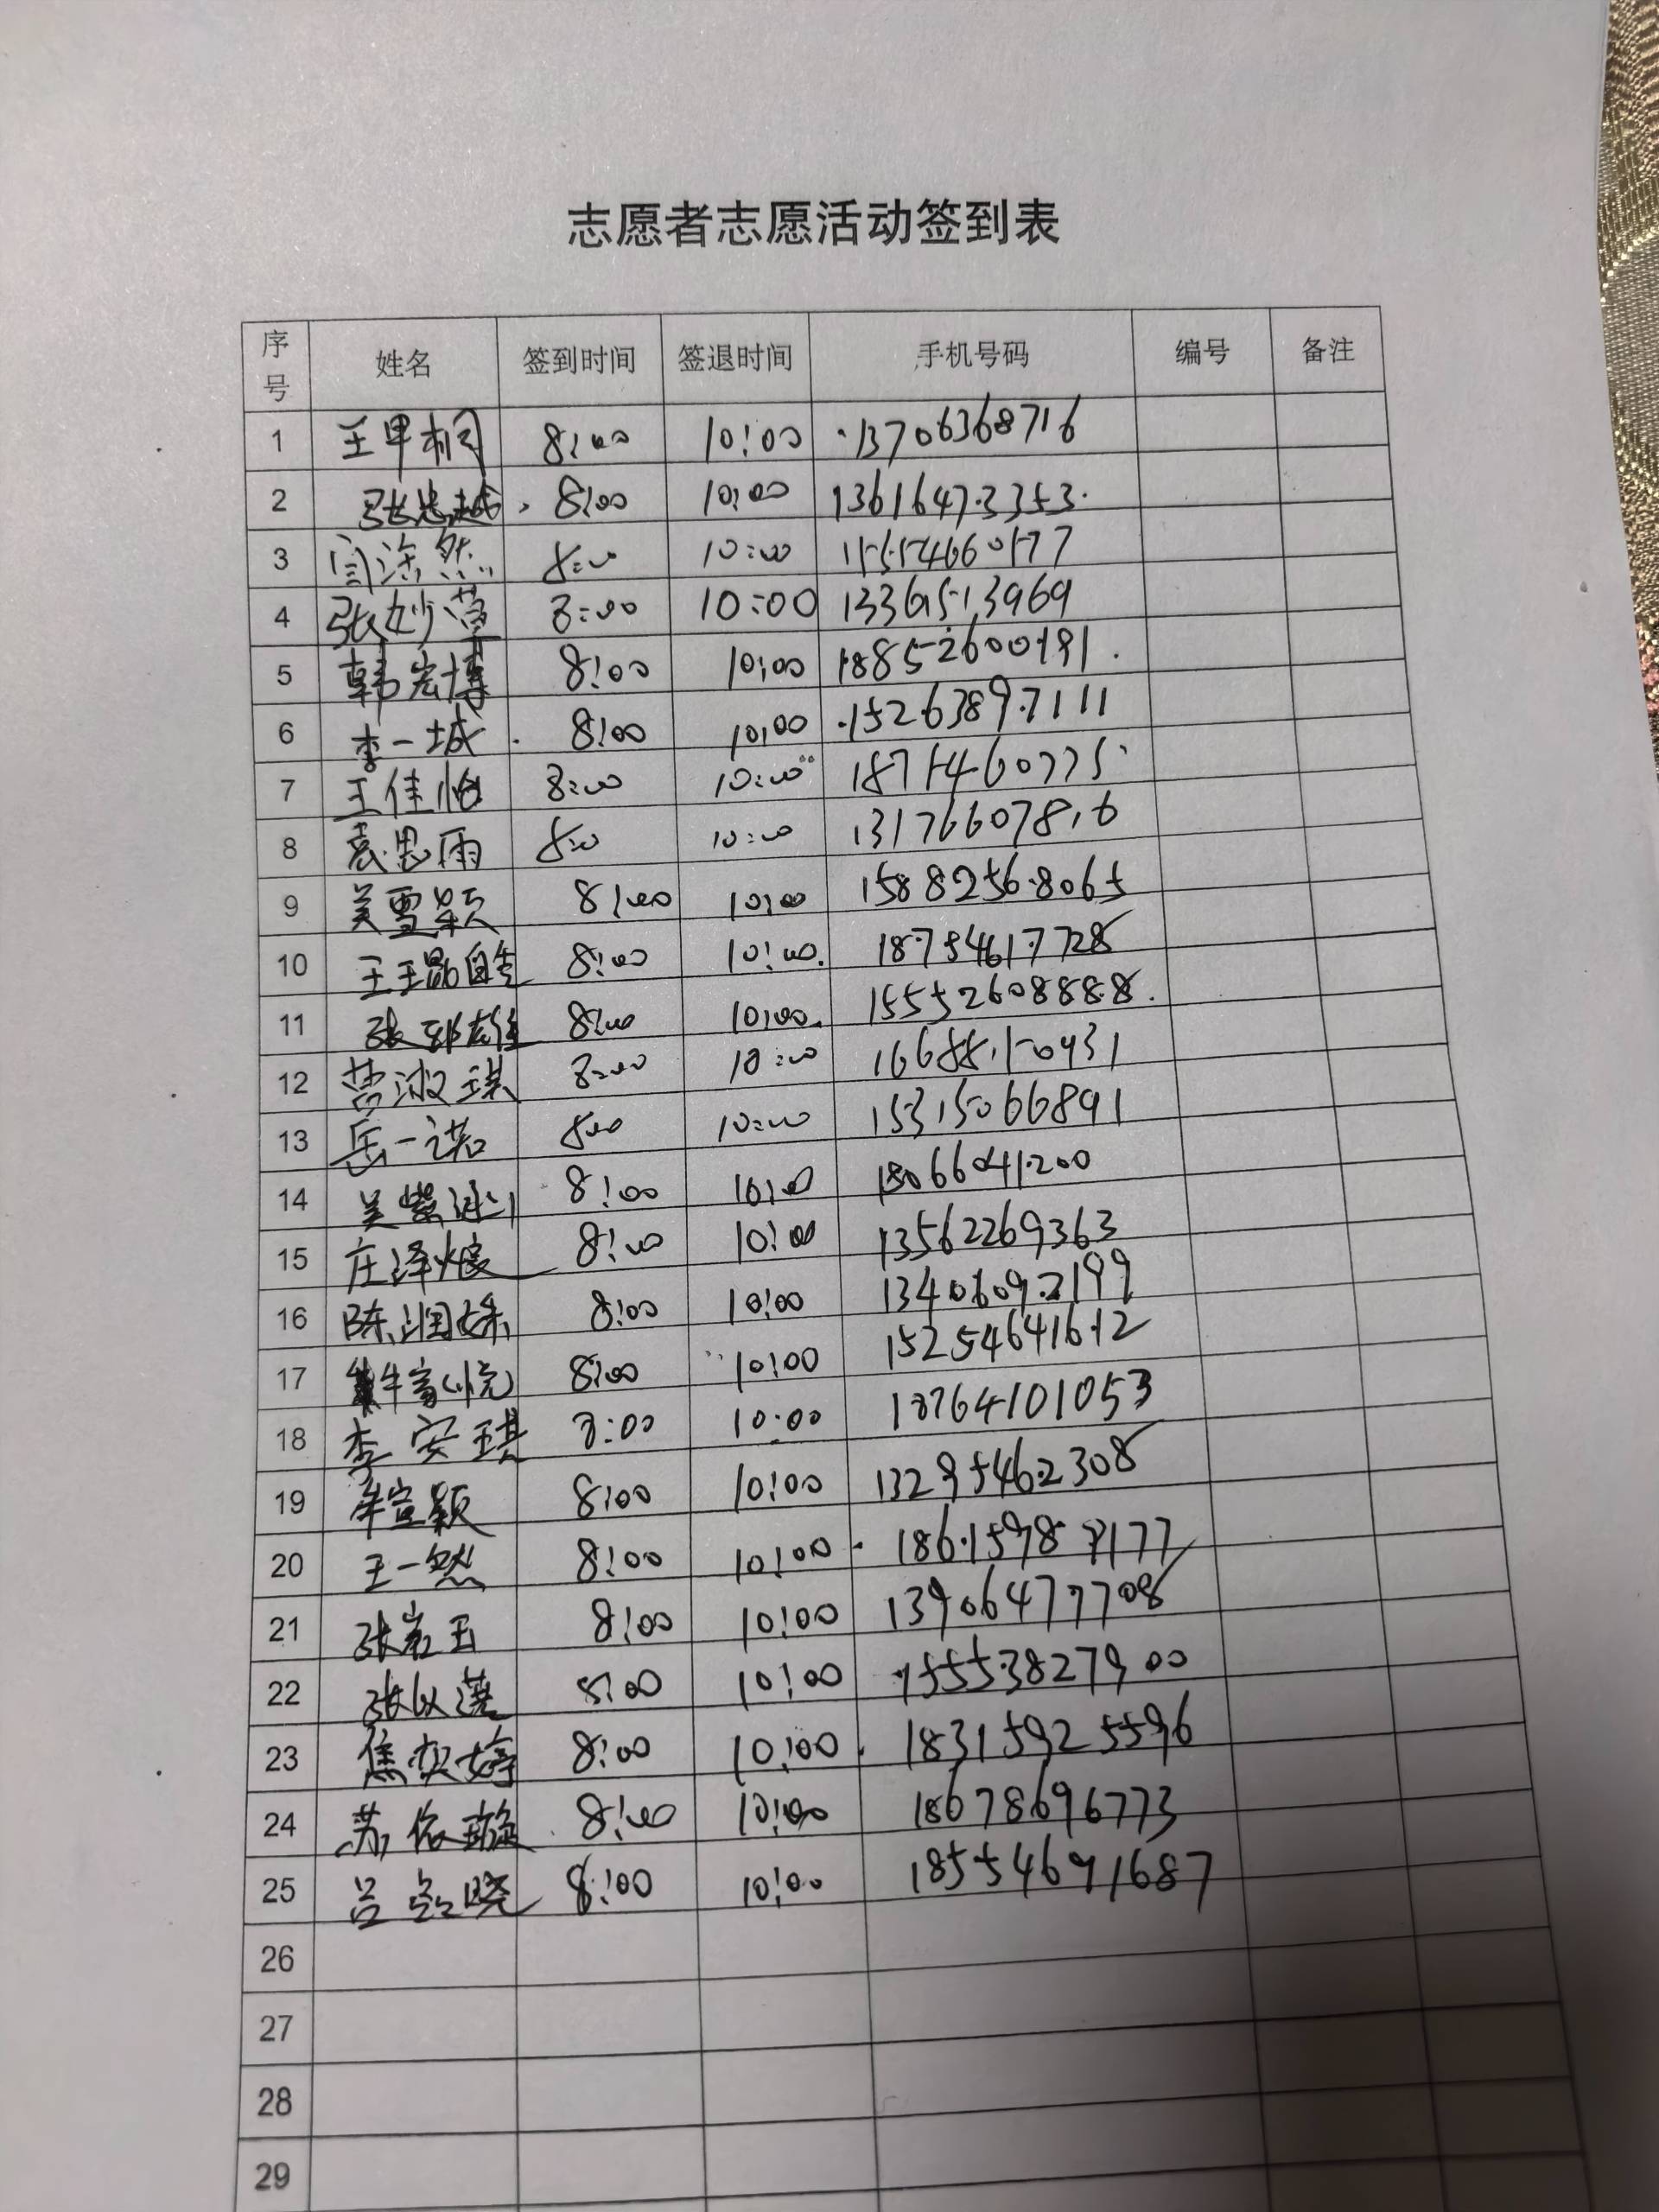 志愿者志愿活动签到表
序号 姓名 签到时间 签退时间 手机号码 编号 备注
1 王甲桐 8:00 10:00 13706368716
2 8:00 10:00 13616473353
3 闫涂然 8:00 10:00 15154660577
4 张妙萱 8:00 10:00 13361513969
5 韩宏博 8:00 10:00 18852600191
6 李一城 8:00 10:00 15263897111
7 王佳怡 8:00 10:00 18715460775
8 袁思雨 8:00 10:00 13176607816
9 吴雪颖 8:00 10:00 15882568065
10 8:00 10:00 18754617728
11 8:00 10:00 15552608888
12 曹淑琪 8:00 10:00 16688150431
13 岳一诺 8:00 10:00 15315066891
14 8:00 10:00 18066041200
15 庄泽烺 8:00 10:00 13562269363
16 陈润姝 8:00 10:00 13406092199
17 8:00 10:00 15254641612
18 李安琪 8:00 10:00 18764101053
19 牟宣颖 8:00 10:00 13295462308
20 王一然 8:00 10:00 18615987177
21 张岩玉 8:00 10:00 13906477708
22 8:00 10:00 15553827900
23 焦奕婷 8:00 10:00 18315925596
24 苏依璇 8:00 10:00 18678696773
25 8:00 10:00 18554691687
26
27
28
29